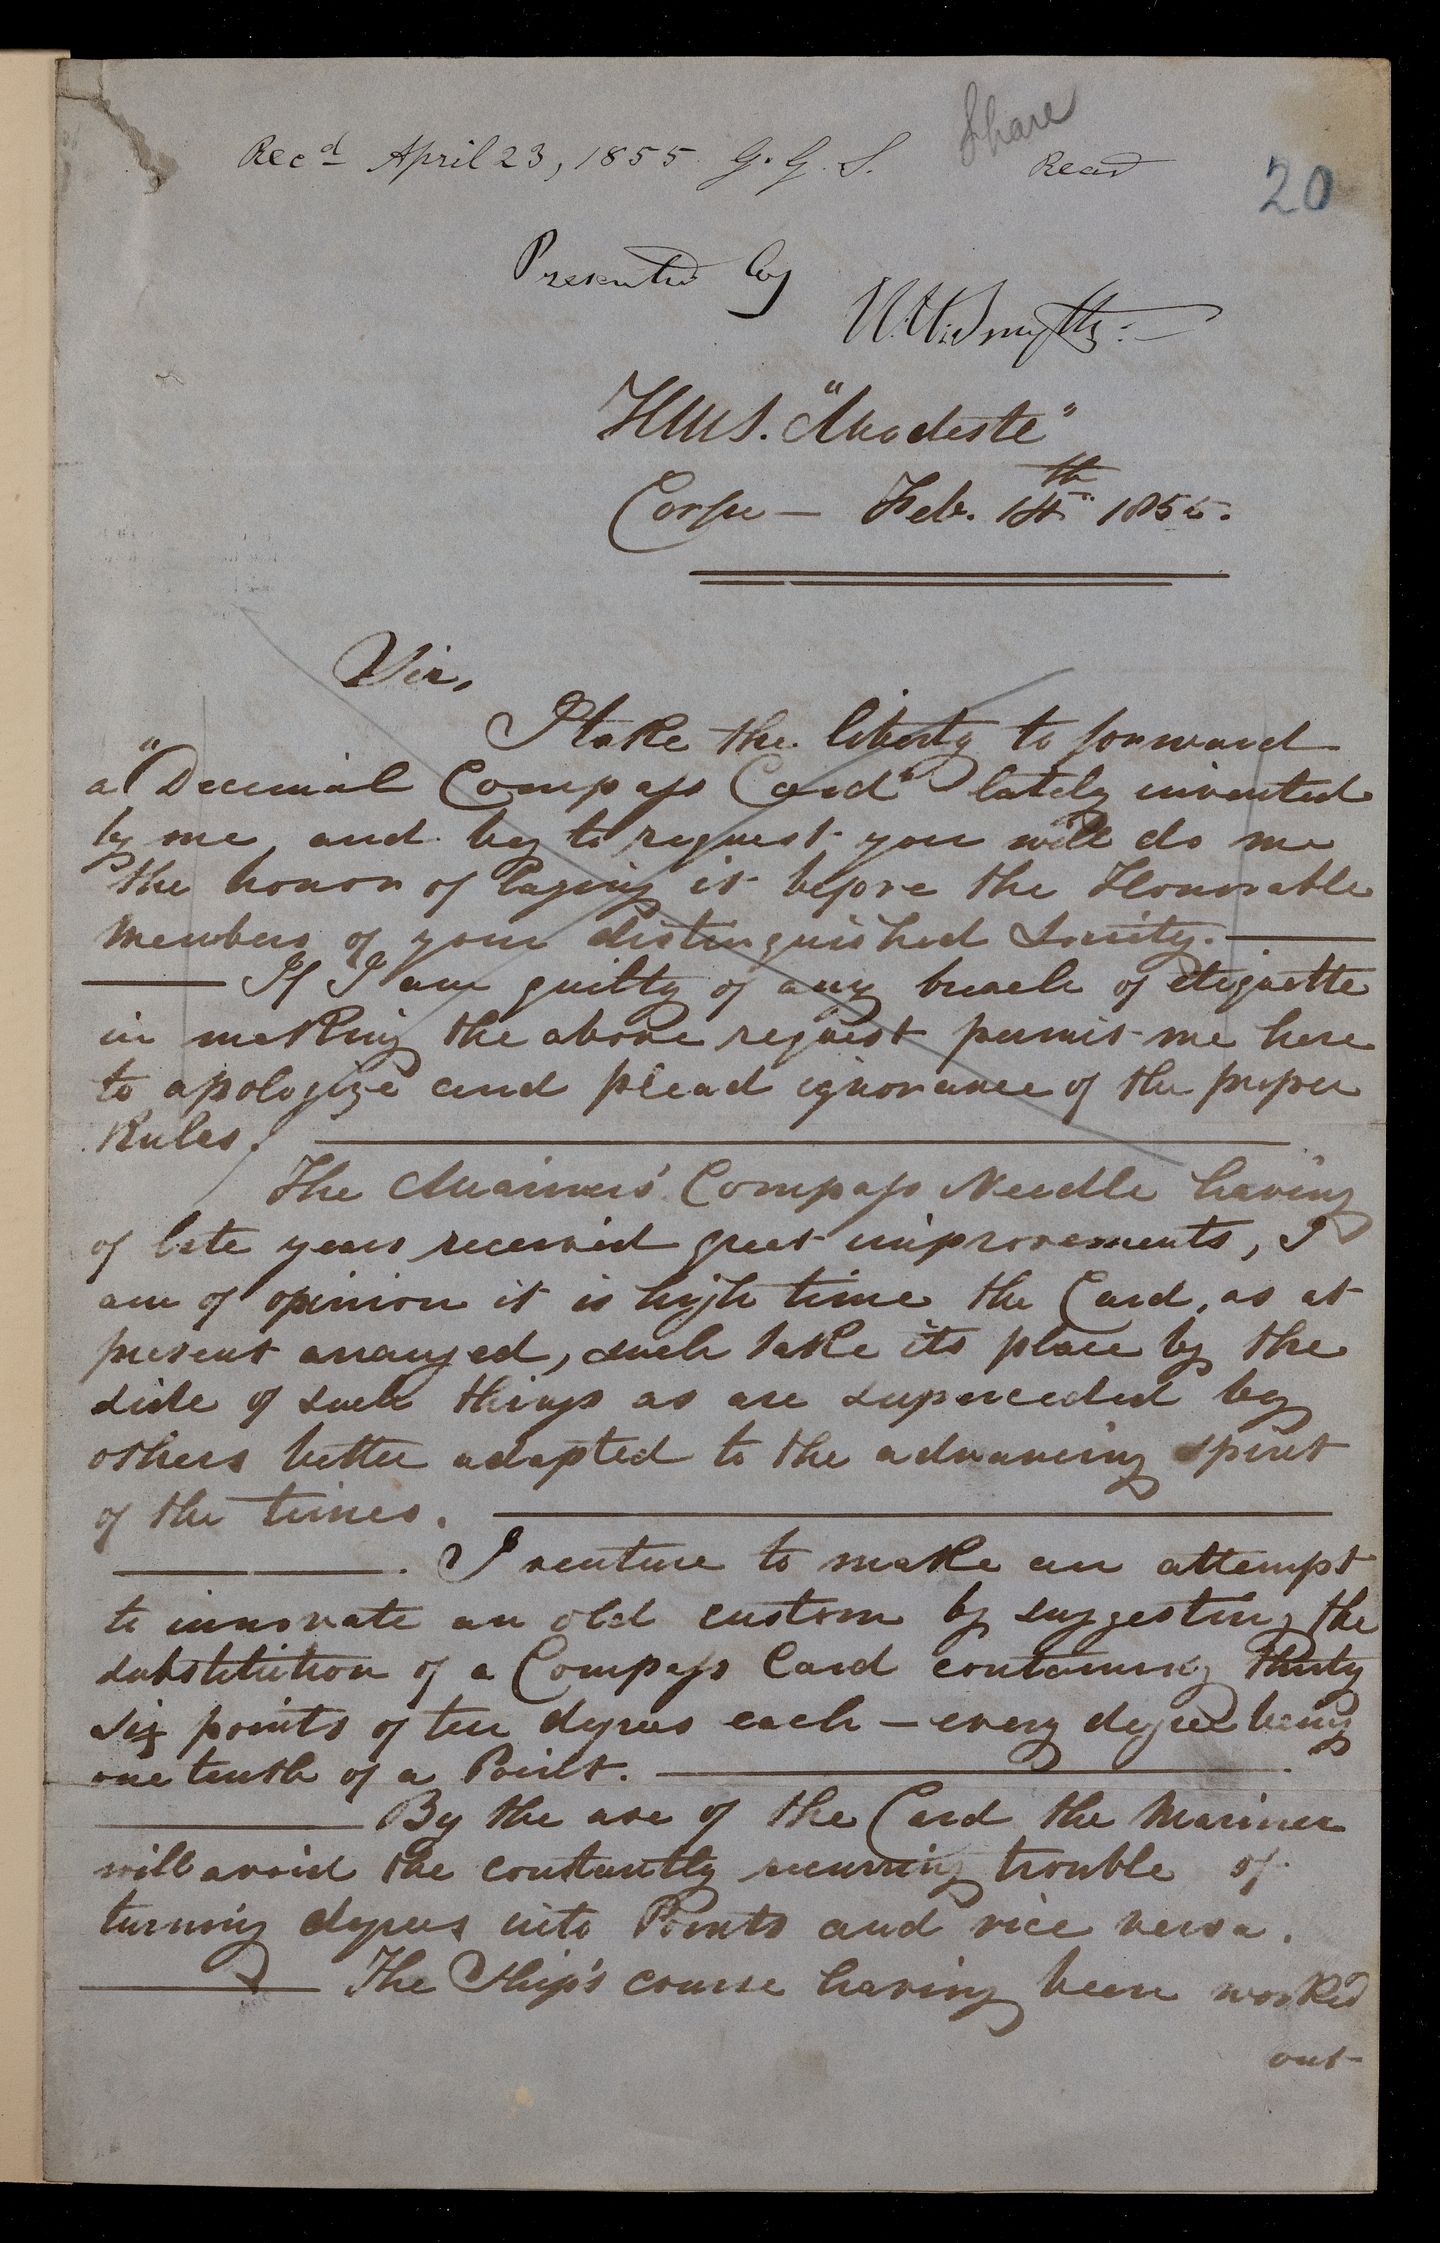 Share
Recd April 23, 1855 G. G. S. Read
20
Presented by
W. H. Smyth:—
H.M.S. "Modeste"
Corfu — Feb. 14th 1855.
Sir,
I take the liberty to forward
a "Decimal Compass Card" lately invented
by me and beg to request you will do me
the honor of laying it before the Honorable
Members of your distinguished Society. —
— If I am guilty of any breach of etiquette
in making the above request permit me here
to apologize and plead ignorance of the proper
Rules. —
The Mariners' Compass Needle having
of late years received great improvements, I
am of opinion it is high time the Card, as at
present arranged, such take its place by the
side of such things as are superceeded by
others better adapted to the advancing spirit
of the times. —
— . I venture to make an attempt
to innovate an old custom by suggesting the
substitution of a Compass Card containing thirty
six points of ten degrees each — every degree being
one tenth of a Point. —
— By the use of the Card the Mariner
will avoid the constantly recurring trouble of
turning degrees into Points and vice versa.
— The Ship's course having been worked
out